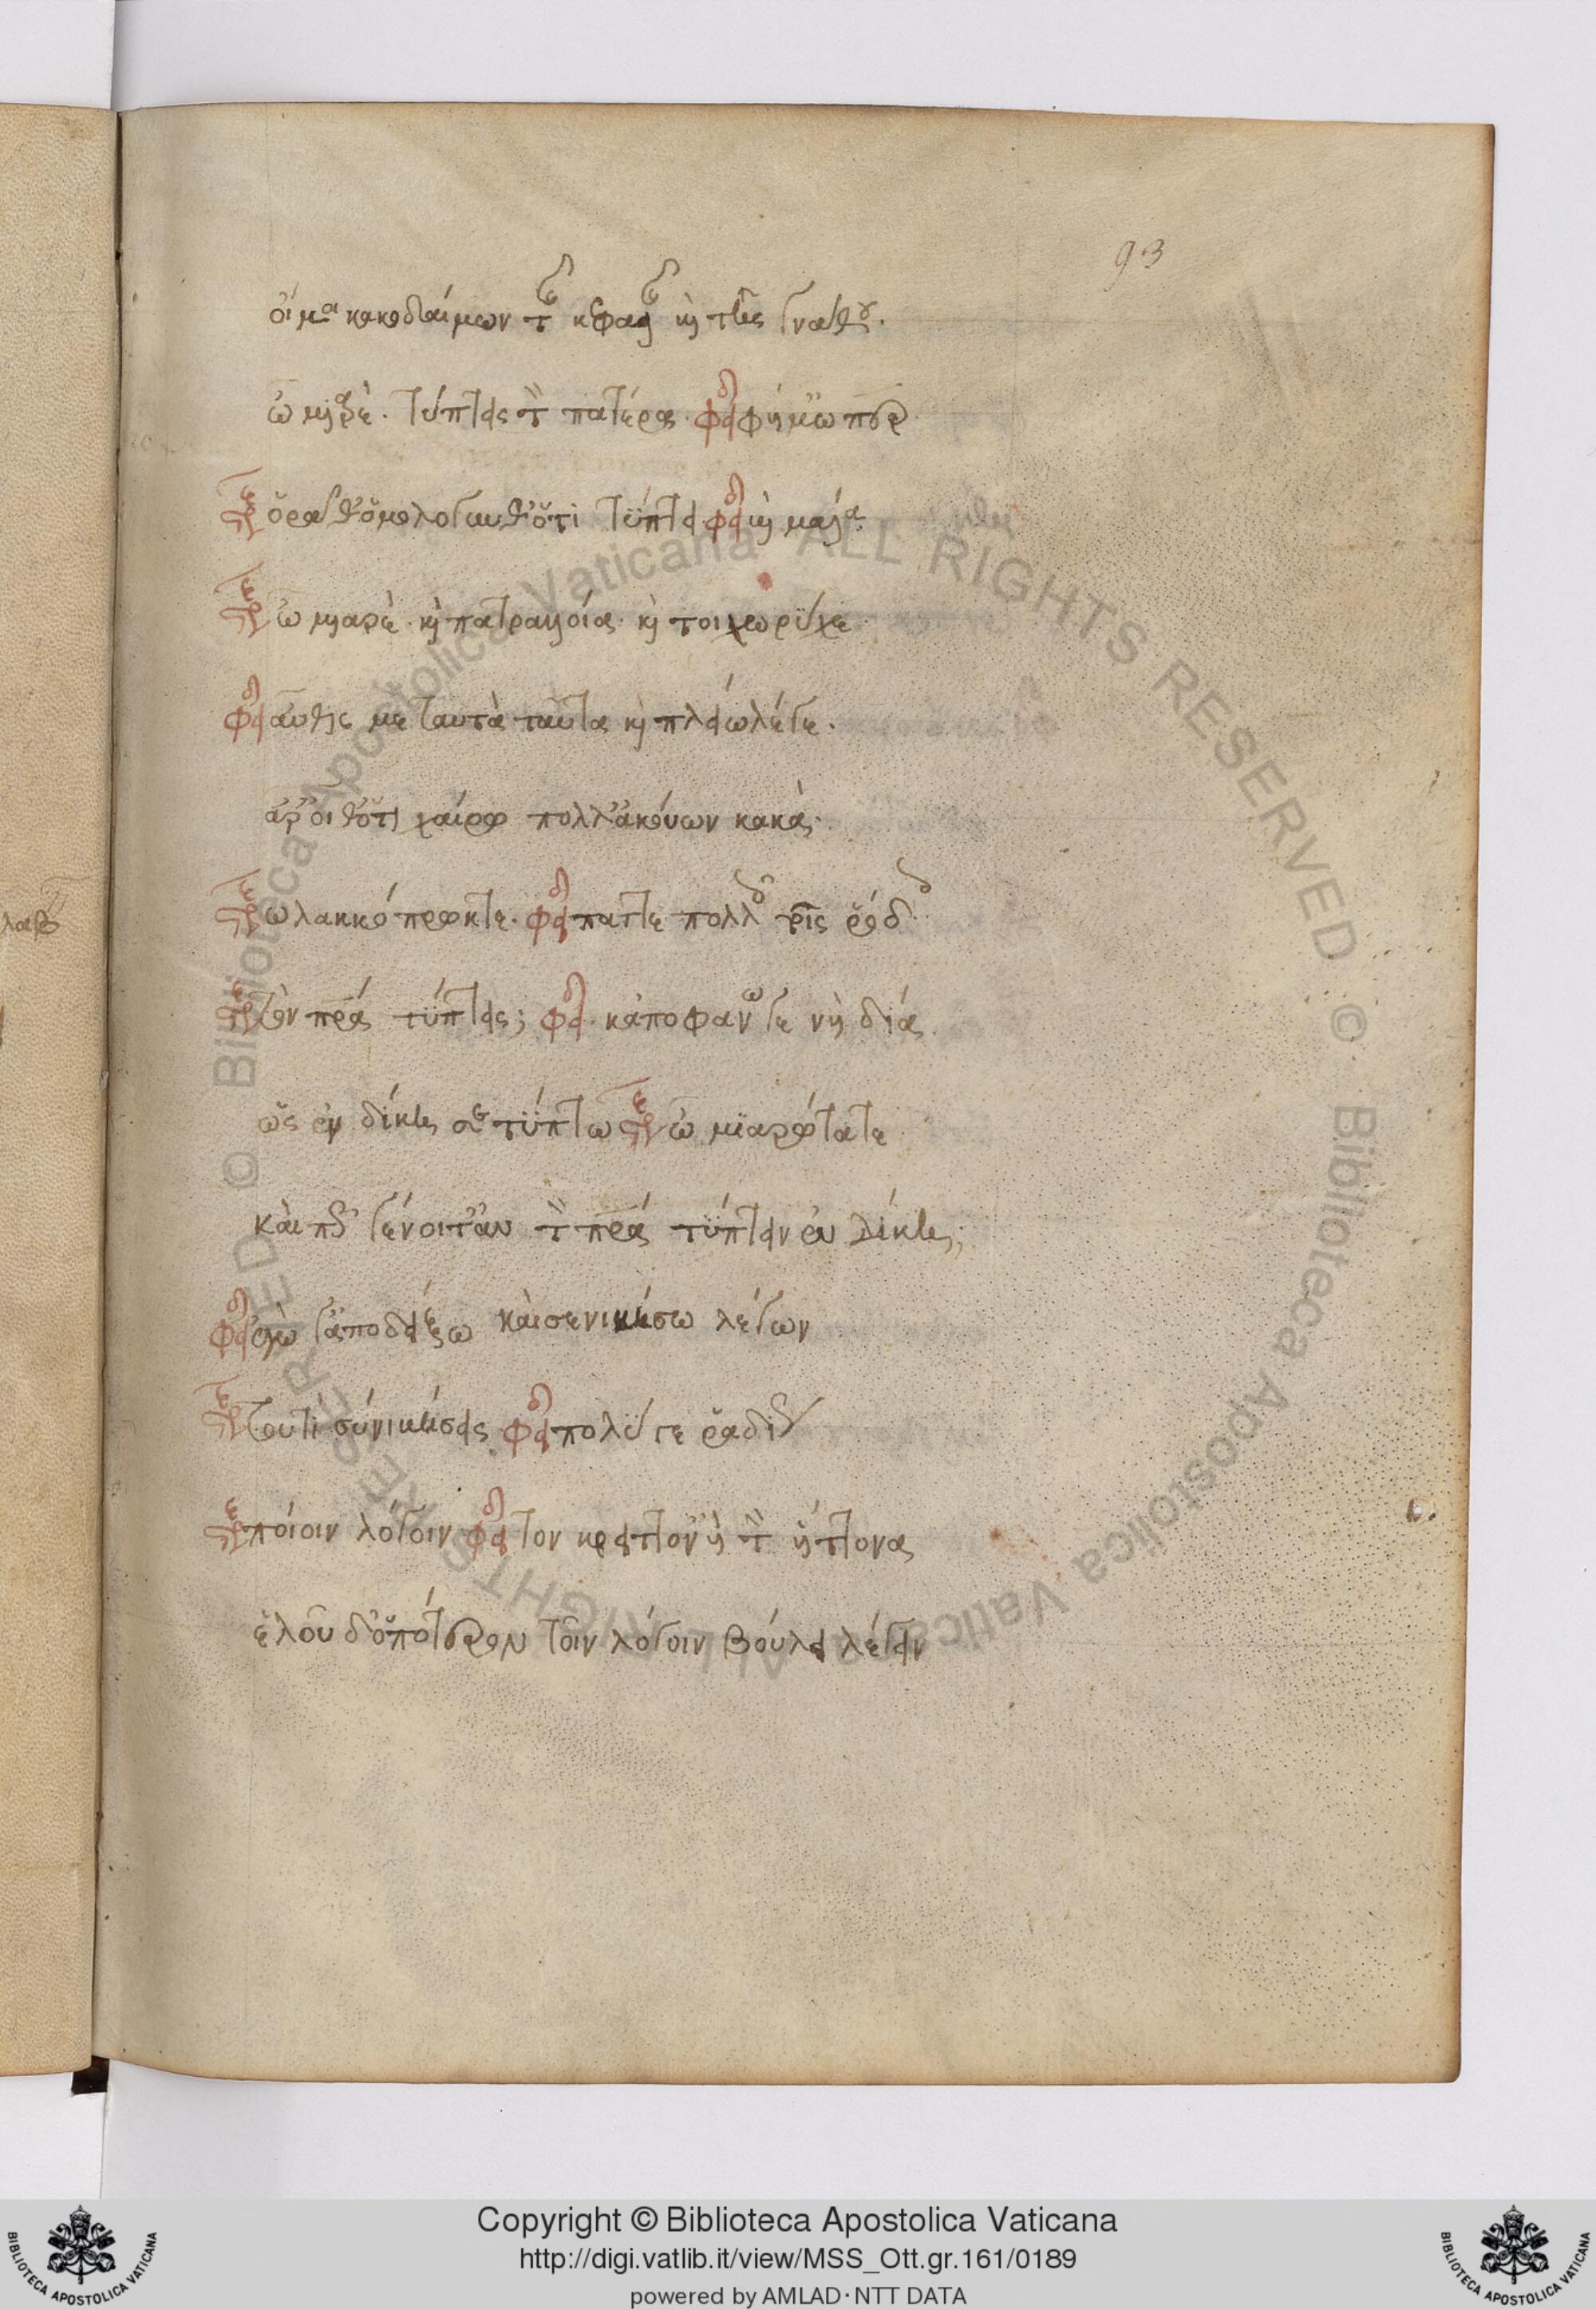 93
οἴμοι κακοδαίμων τῆς κεφαλῆς καὶ τῆς γνάθου.
ὦ μιαρέ. τύπτεις τὸν πατέρα. φειδ φήμ' ὦ πάτερ
στρεψ ὁρᾶθ' ὁμολογοῦνθ' ὅτι με τύπτει φειδ καὶ μάλα
στρεψ ὦ μιαρὲ. καὶ πατραλοία. καὶ τοιχωρύχε.
φειδ αὖθίς με ταυτὰ ταῦτα καὶ πλείω λέγε.
ἆρ' οἶσθ' ὅτι χαίρω πόλλ' ἀκούων κακά.
στρεψ ὦ λακκόπρωκτε. φειδ πάττε πολλοῖς τοῖς ῥόδοις
στρεψ τὸν πατέρα τύπτεις; φειδ κἀποφανῶ γε νὴ δία.
ὡς ἐν δίκῃ σε τύπτω στρεψ ὦ μιαρώτατε
καὶ πῶς γένοιτ' ἂν τὸν πατέρα τύπτειν ἐν δίκῃ;
φειδ ἐγώ γ' ἀποδείξω καὶ σε νικήσω λέγων
στρεψ τουτὶ σὺ νικήσεις φειδ πολύ γε ῥᾳδίως
στρεψ ποίοιν λόγοιν φειδ τὸν κρείττον' ἢ τὸν ἥττονα
ἑλοῦ δ' ὁπότερον τοῖν λόγοιν βούλει λέγειν
Copyright © Biblioteca Apostolica Vaticana
http://digi.vatlib.it/view/MSS_Ott.gr.161/0189
powered by AMLAD·NTT DATA
BIBLIOTECA APOSTOLICA VATICANA
BIBLIOTECA APOSTOLICA VATICANA
© Biblioteca Apostolica Vaticana ALL RIGHTS RESERVED © Biblioteca Apostolica Vaticana ALL RIGHTS RESERVED